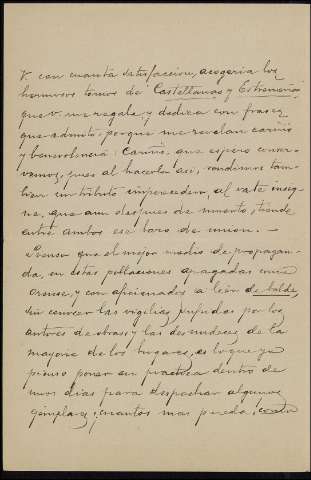 Y con cuanta satisfaccion, acogeria los
hermosos tomos de Castellanas y Extremeñas
que V. me regala, y dedica con frases
que admito, porque me revelan cariño
y benevolencia. Cariño, que espero conser-
vemos, pues al hacerlo asi, rendimos tam-
bien un tributo imperecedero, al vate insig-
ne, que aun despues de muerto, tiende
entre ambos ese lazo de union. —
Pienso que el mejor medio de propagan-
da, en estas poblaciones apagadas como
Orense, y con aficionados a leer de balde,
sin conocer las vigilias sufridas por los
autores de obras, y las desnudeces de la
mayoria de los hogares, es lo que yo
pienso poner en practica dentro de
unos dias para despachar algunos
ejemplares; cuantos mas pueda,